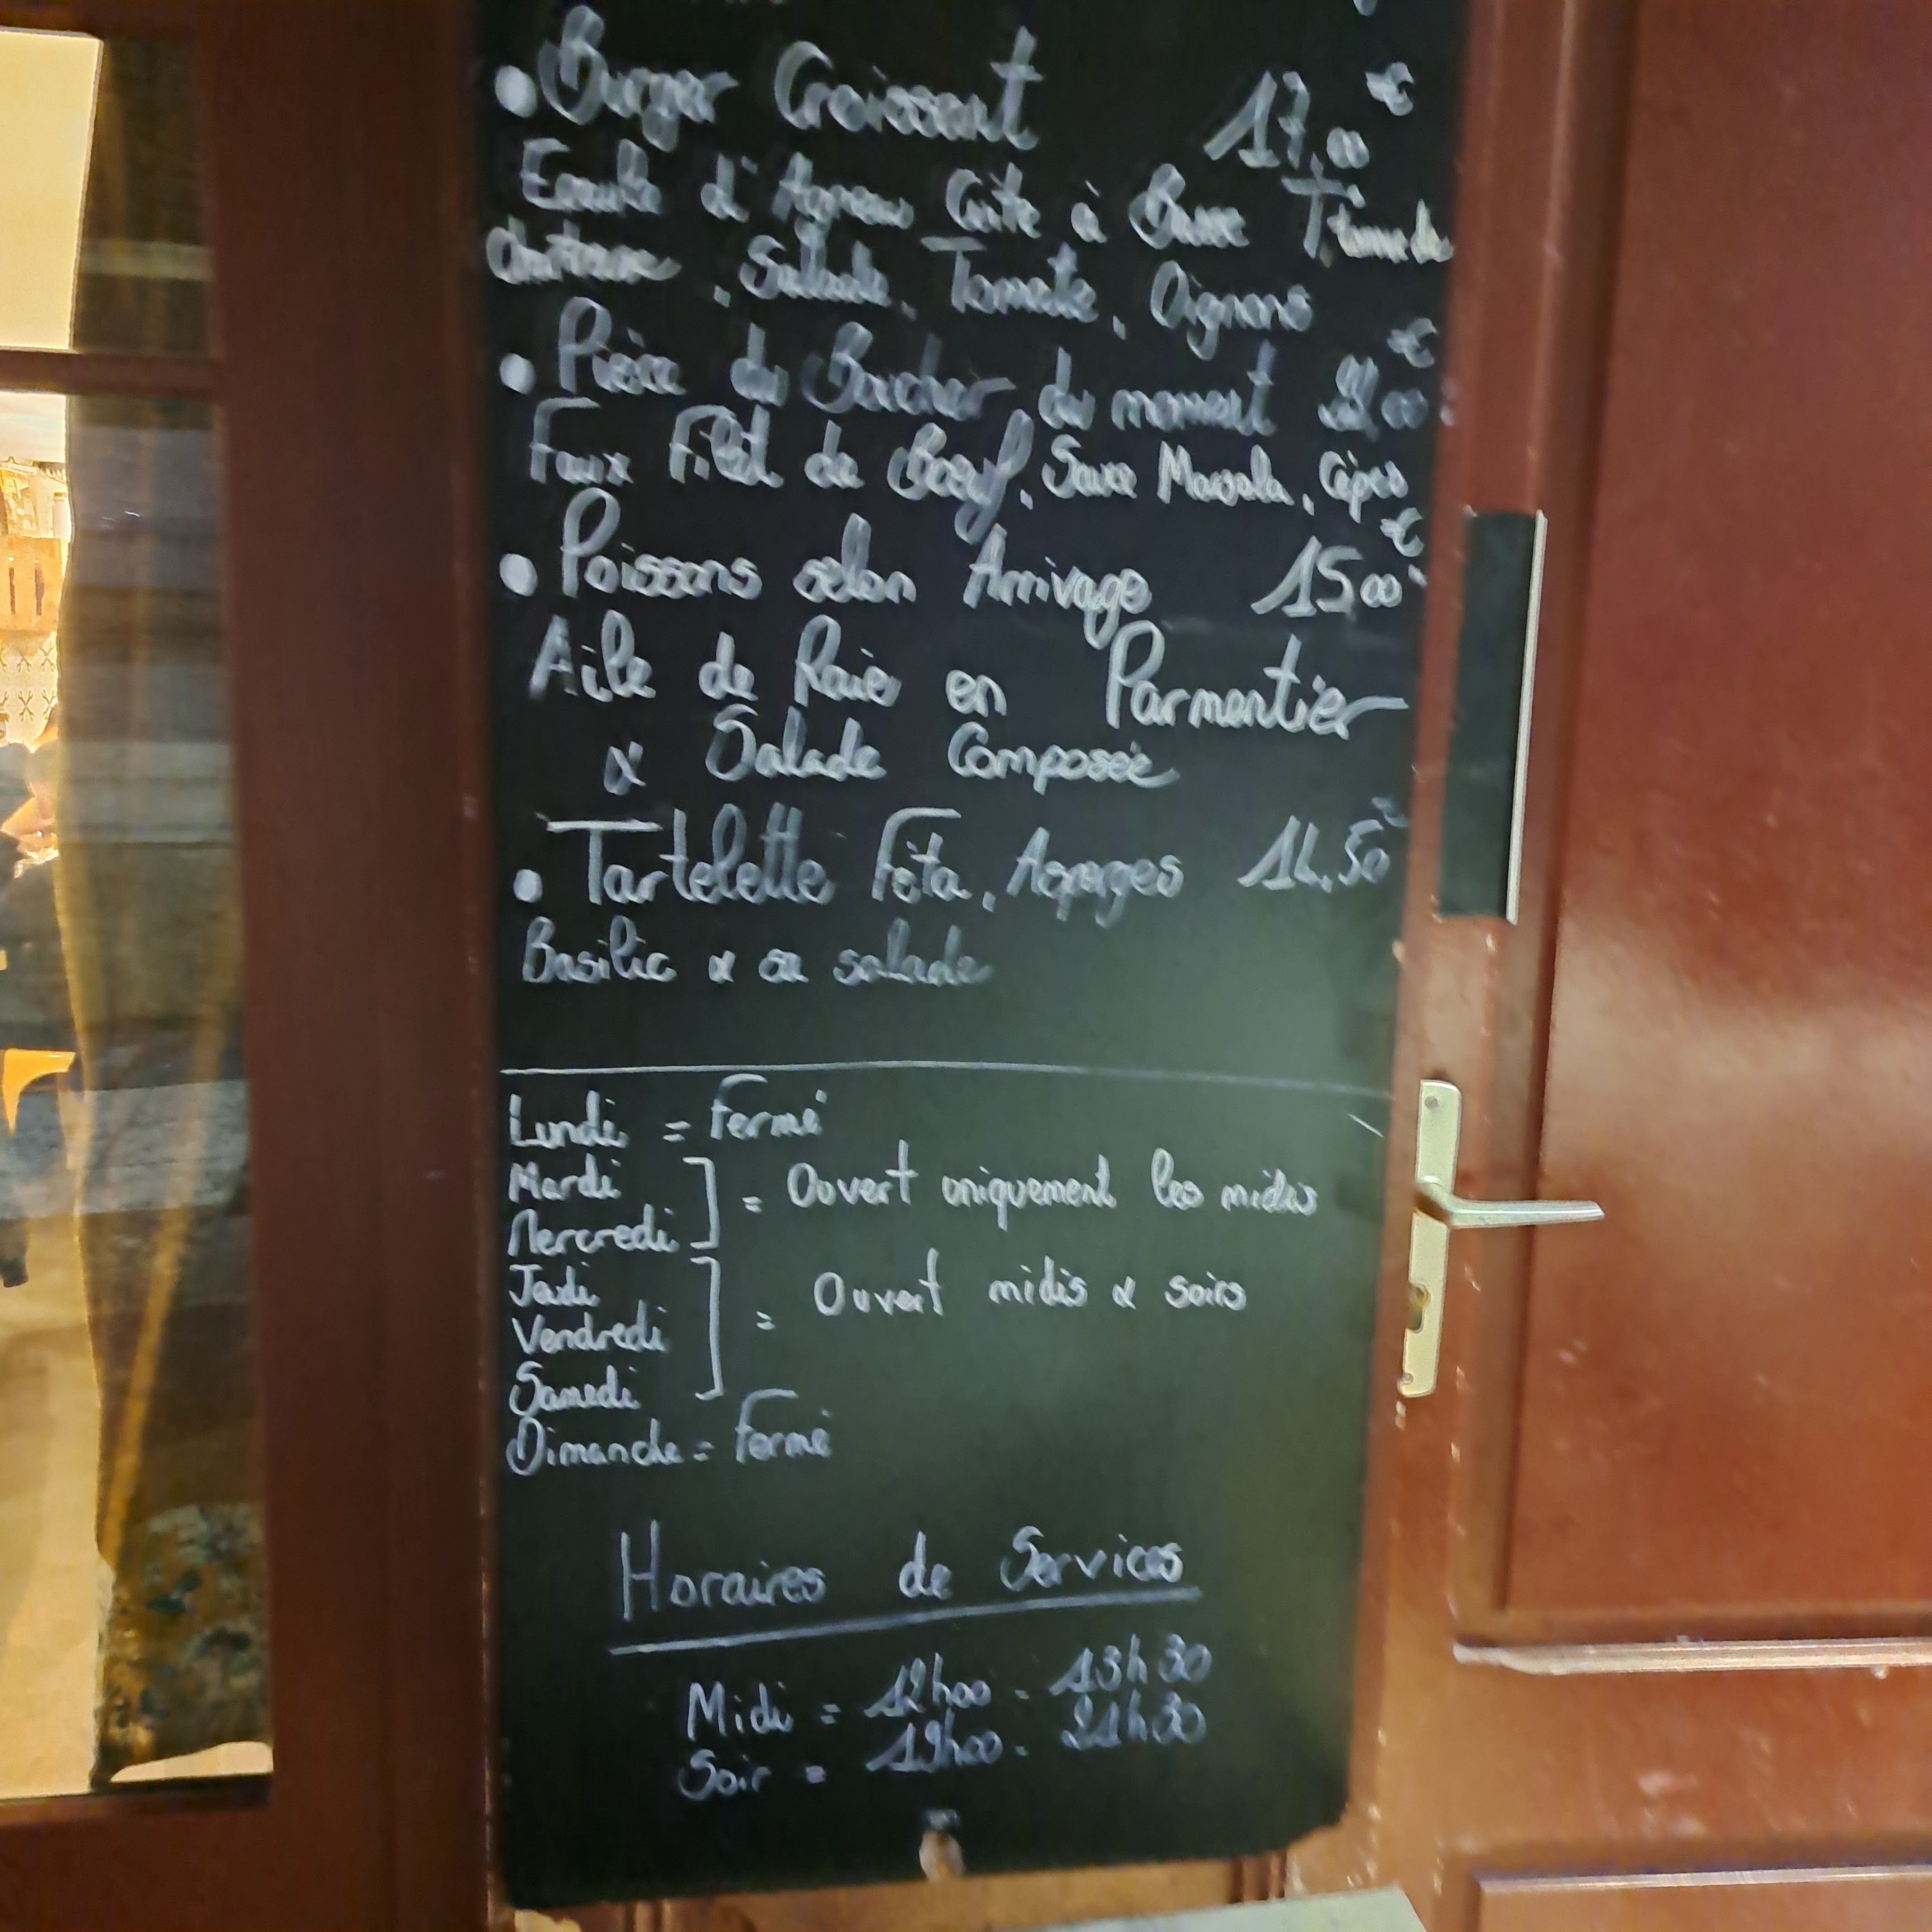 • Burger Croissant 17,00 €
Epaule d'Agneau Cuite à Basse T°, tome de
Chartreux, Salade, Tomate, Oignons
• Pièce du Boucher du moment €
Faux Filet de Boeuf, Sauce Marsala, Cèpes
• Poissons selon Arrivage 15,00 €
Aile de Raie en Parmentier
& Salade Composée
• Tartelette Féta, Asperges 14,50 €
Basilic & sa salade
Lundi = Fermé
Mardi
Mercredi ] = Ouvert uniquement les midis
Jeudi
Vendredi ] = Ouvert midis & soirs
Samedi
Dimanche = Fermé
Horaires de Services
Midi = 12h00 - 13h30
Soir = 19h00 - 21h30